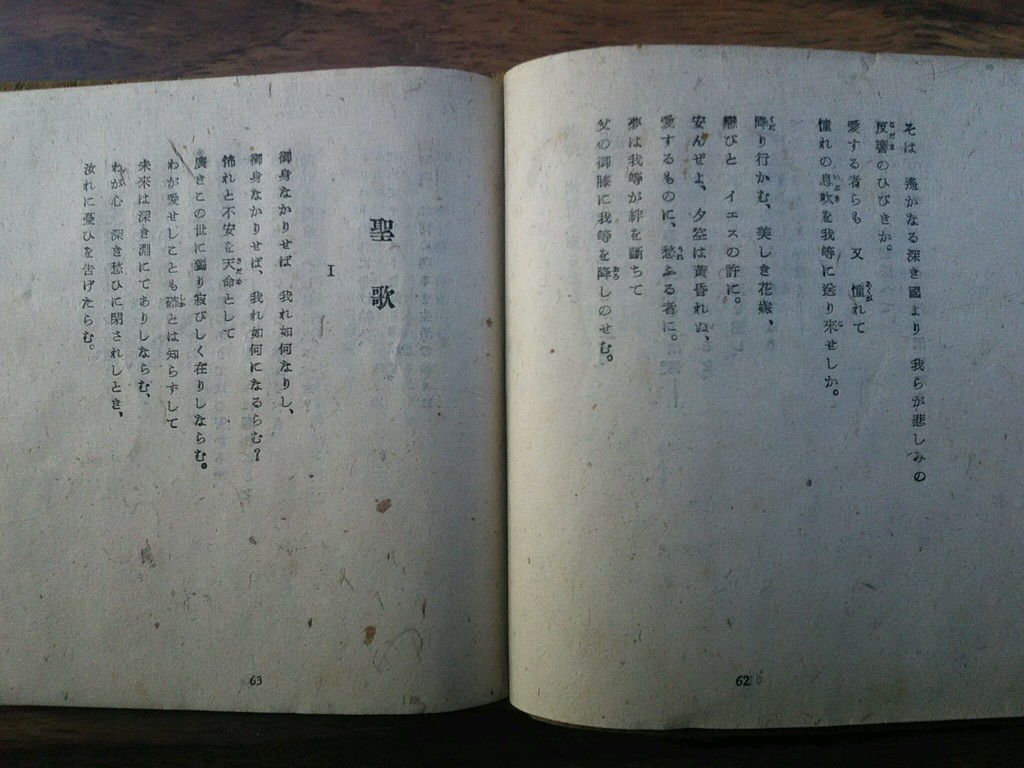 そは 遙かなる深き國より 我らが悲しみの
反響のひびきか。
愛する者らも 又 憧れて
憧れの息吹を我等に送り來せしか。
降り行かむ、美しき花嫁、
戀びと イエスの許に。
安んぜよ、夕空は黄昏れぬ、
愛するものに、愁ふる者に。
夢は我等が絆を斷ちて
父の御膝に我等を降しのせむ。
62
聖歌
I
御身なかりせば 我れ如何なりし、
御身なかりせば、我れ如何になるらむ?
怖れと不安を天命として
廣きこの世に獨り寂びしく在りしならむ。
わが愛せしことも確とは知らずして
未來は深き淵にてありしならむ、
わが心 深き愁ひに閉されしとき、
汝れに憂ひを告げたらむ。
63